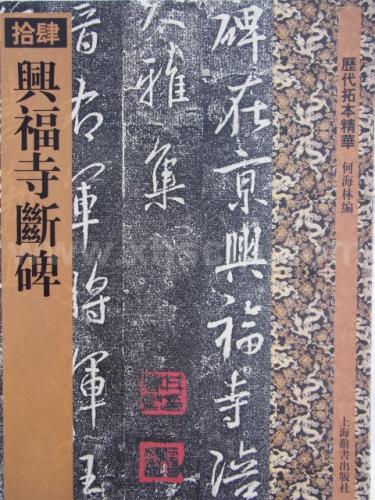 拾肆
興福寺斷碑
碑在京興福寺
大雅集
晉右軍將軍王
歷代拓本精華
何海林編
上海辭書出版社